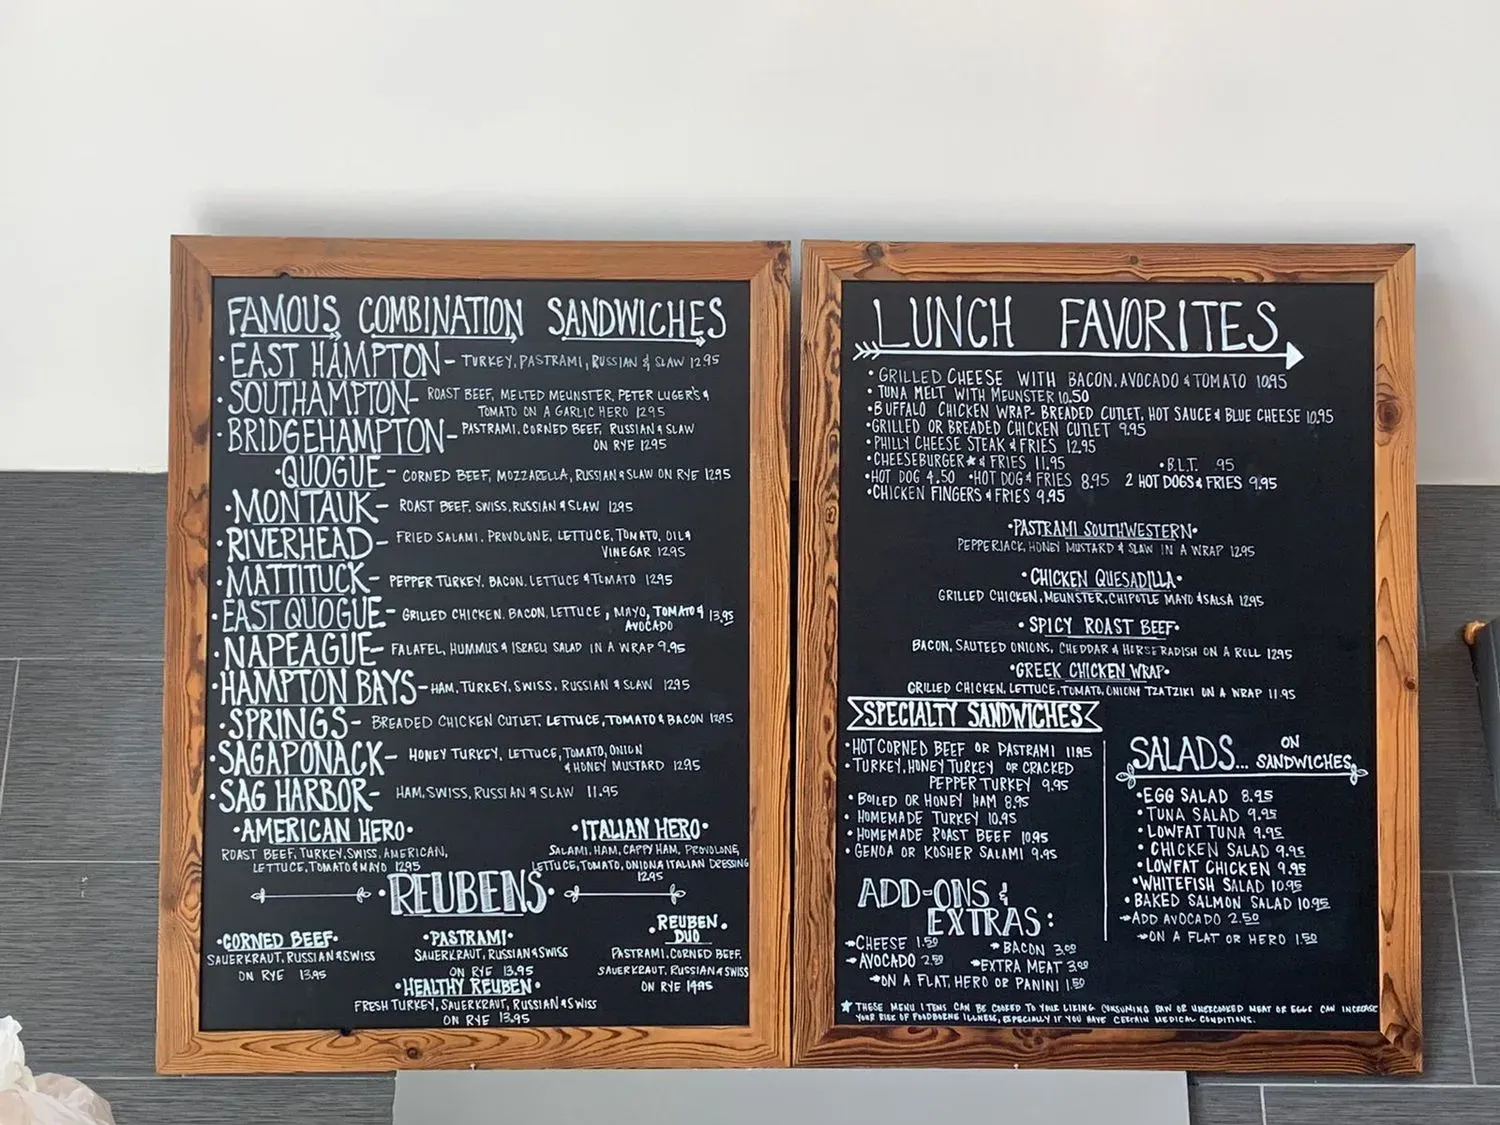 FAMOUS COMBINATION SANDWICHES
•EAST HAMPTON- TURKEY, PASTRAMI, RUSSIAN & SLAW 12.95
•SOUTHAMPTON- ROAST BEEF, MELTED MEUNSTER, PETER LUGER'S &
TOMATO ON A GARLIC HERO 12.95
•BRIDGEHAMPTON- PASTRAMI, CORNED BEEF, RUSSIAN & SLAW
ON RYE 12.95
•QUOGUE- CORNED BEEF, MOZZARELLA, RUSSIAN & SLAW ON RYE 12.95
•MONTAUK- ROAST BEEF, SWISS, RUSSIAN & SLAW 12.95
•RIVERHEAD- FRIED SALAMI, PROVOLONE, LETTUCE, TOMATO, OIL &
VINEGAR 12.95
•MATTITUCK- PEPPER TURKEY, BACON, LETTUCE & TOMATO 12.95
•EAST QUOGUE- GRILLED CHICKEN, BACON, LETTUCE, MAYO, TOMATO & 13.95
AVOCADO
•NAPEAGUE- FALAFEL, HUMMUS & ISRAELI SALAD IN A WRAP 9.95
•HAMPTON BAYS- HAM, TURKEY, SWISS, RUSSIAN & SLAW 12.95
•SPRINGS- BREADED CHICKEN CUTLET, LETTUCE, TOMATO & BACON 12.95
•SAGAPONACK- HONEY TURKEY, LETTUCE, TOMATO, ONION
& HONEY MUSTARD 12.95
•SAG HARBOR- HAM, SWISS, RUSSIAN & SLAW 11.95
•AMERICAN HERO•
ROAST BEEF, TURKEY, SWISS, AMERICAN,
LETTUCE, TOMATO & MAYO 12.95
•ITALIAN HERO•
SALAMI, HAM, CAPPY HAM, PROVOLONE,
LETTUCE, TOMATO, ONION & ITALIAN DRESSING
12.95
•REUBENS•
•CORNED BEEF•
SAUERKRAUT, RUSSIAN & SWISS
ON RYE 13.95
•PASTRAMI•
SAUERKRAUT, RUSSIAN & SWISS
ON RYE 13.95
•REUBEN•
DUO
PASTRAMI, CORNED BEEF,
SAUERKRAUT, RUSSIAN & SWISS
ON RYE 14.95
•HEALTHY REUBEN•
FRESH TURKEY, SAUERKRAUT, RUSSIAN & SWISS
ON RYE 13.95
LUNCH FAVORITES
•GRILLED CHEESE WITH BACON, AVOCADO & TOMATO 10.95
•TUNA MELT WITH MEUNSTER 10.50
•BUFFALO CHICKEN WRAP- BREADED CUTLET, HOT SAUCE & BLUE CHEESE 10.95
•GRILLED OR BREADED CHICKEN CUTLET 9.95
•PHILLY CHEESE STEAK & FRIES 12.95
•CHEESEBURGER★ & FRIES 11.95 •B.L.T. .95
•HOT DOG 4.50 •HOT DOG & FRIES 8.95 2 HOT DOGS & FRIES 9.95
•CHICKEN FINGERS & FRIES 9.95
•PASTRAMI SOUTHWESTERN•
PEPPERJACK, HONEY MUSTARD & SLAW IN A WRAP 12.95
•CHICKEN QUESADILLA•
GRILLED CHICKEN, MEUNSTER, CHIPOTLE MAYO & SALSA 12.95
•SPICY ROAST BEEF•
BACON, SAUTEED ONIONS, CHEDDAR & HORSERADISH ON A ROLL 12.95
•GREEK CHICKEN WRAP•
GRILLED CHICKEN, LETTUCE, TOMATO, ONION & TZATZIKI ON A WRAP 11.95
SPECIALTY SANDWICHES
•HOT CORNED BEEF OR PASTRAMI 11.95
•TURKEY, HONEY TURKEY OR CRACKED
PEPPER TURKEY 9.95
•BOILED OR HONEY HAM 8.95
•HOMEMADE TURKEY 10.95
•HOMEMADE ROAST BEEF 10.95
•GENOA OR KOSHER SALAMI 9.95
ADD-ONS &
EXTRAS:
CHEESE 1.50 BACON 3.00
AVOCADO 2.50 EXTRA MEAT 3.00
ON A FLAT, HERO OR PANINI 1.50
SALADS... ON
SANDWICHES
•EGG SALAD 8.95
•TUNA SALAD 9.95
•LOWFAT TUNA 9.95
•CHICKEN SALAD 9.95
•LOWFAT CHICKEN 9.95
•WHITEFISH SALAD 10.95
•BAKED SALMON SALAD 10.95
ADD AVOCADO 2.50
ON A FLAT OR HERO 1.50
★ THESE MENU ITEMS CAN BE COOKED TO YOUR LIKING. CONSUMING RAW OR UNDERCOOKED MEAT OR EGGS CAN INCREASE
YOUR RISK OF FOODBORNE ILLNESS, ESPECIALLY IF YOU HAVE CERTAIN MEDICAL CONDITIONS.